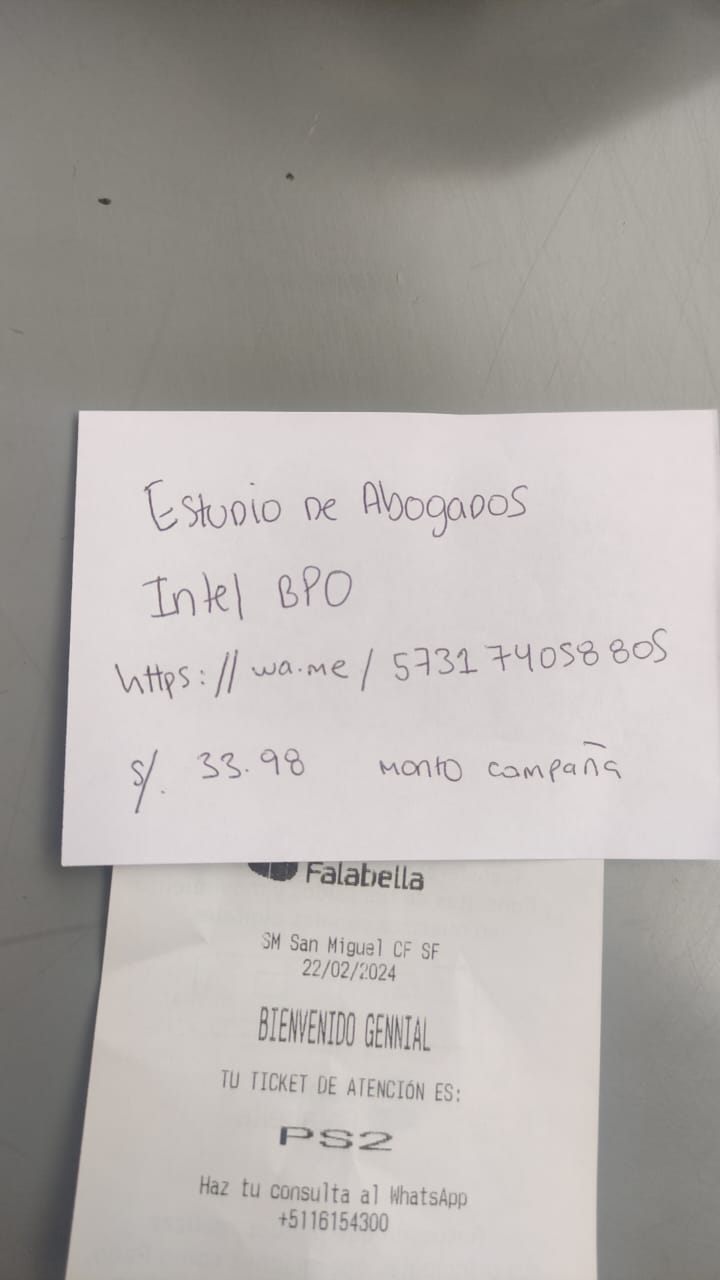 Estudio de Abogados
Intel BPO
https://wa.me/573174058805
S/. 33.98 Monto campaña
Falabella
SM San Miguel CF SF
22/02/2024
BIENVENIDO GENNIAL
TU TICKET DE ATENCIÓN ES:
PS2
Haz tu consulta al WhatsApp
+5116154300